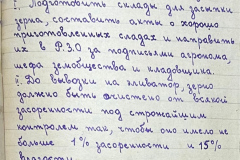 I. Подготовить склады для засыпки
зерна, составить акты о хорошо
приготовленных складах и направить
их в Р.З.О за подписями агронома,
шефа земобщества и кладовщика.
II. До вывозки на эливатор, зерно
должно быть очистено от всякой
засоренности под строжайшим
контролем так, чтобы оно имело не
больше 1% засоренности и 15%
влагости